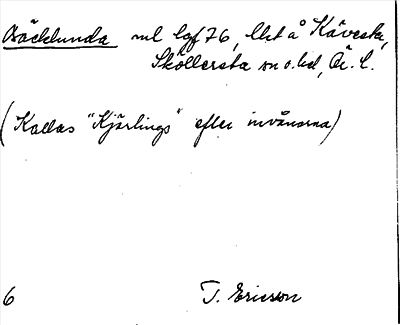 Bäcklunda rul lgf 76, lht å Kävesta,
Sköllersta sn o. hd, Ör. l.
(Kallas "Kjärlings" efter invånarna)
6 T. Ericson